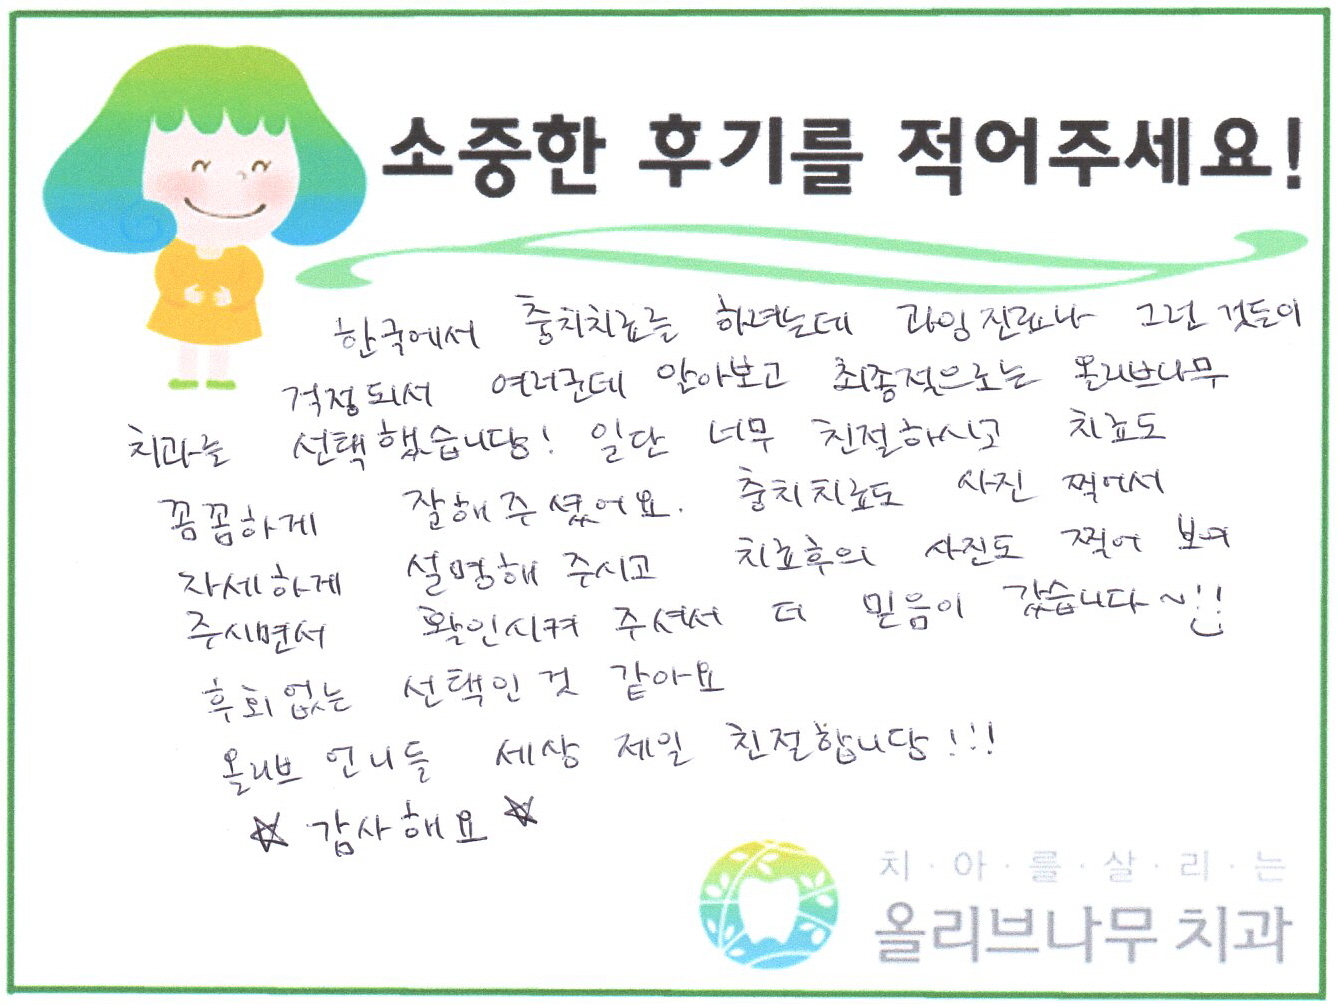 소중한 후기를 적어주세요!
한국에서 충치치료를 하려는데 과잉진료나 그런 것들이
걱정되서 여러군데 알아보고 최종적으로는 올리브나무
치과를 선택했습니당! 일단 너무 친절하시고 치료도
꼼꼼하게 잘해주셨어요. 충치치료도 사진 찍어서
자세하게 설명해 주시고 치료후의 사진도 찍어 보여
주시면서 확인시켜 주셔서 더 믿음이 갔습니다~!!
후회없는 선택인 것 같아요
올리브 언니들 세상 제일 친절합니당!!!
☆ 감사해요 ☆
치·아·를·살·리·는
올리브나무 치과